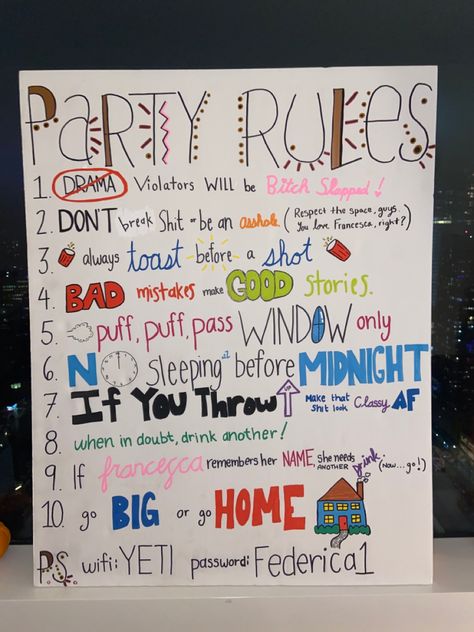 PARTY RULES
1. DRAMA Violators WILL be Bitch Slapped!
2. DONT break Shit or be an asshole (Respect the space, guys. You love Francesca, right?)
3. always toast before a shot
4. BAD mistakes make GOOD Stories.
5. puff, puff, pass WINDOW only
6. NO Sleeping before MIDNIGHT
7. If You Throw ↑ Make that Shit look Classy AF
8. when in doubt, drink another!
9. If francesca remembers her NAME, she needs ANOTHER drink (Now... go!)
10. go BIG or go HOME
P.S. wifi: YETI password: Federica1